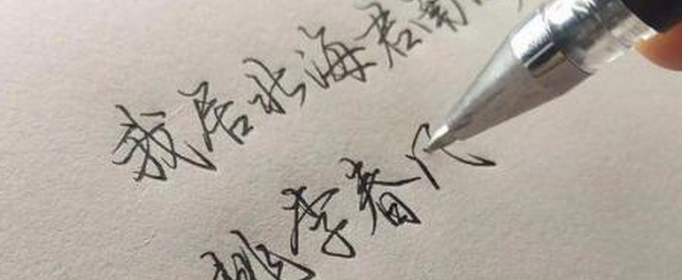 我居北海君南
桃李春风